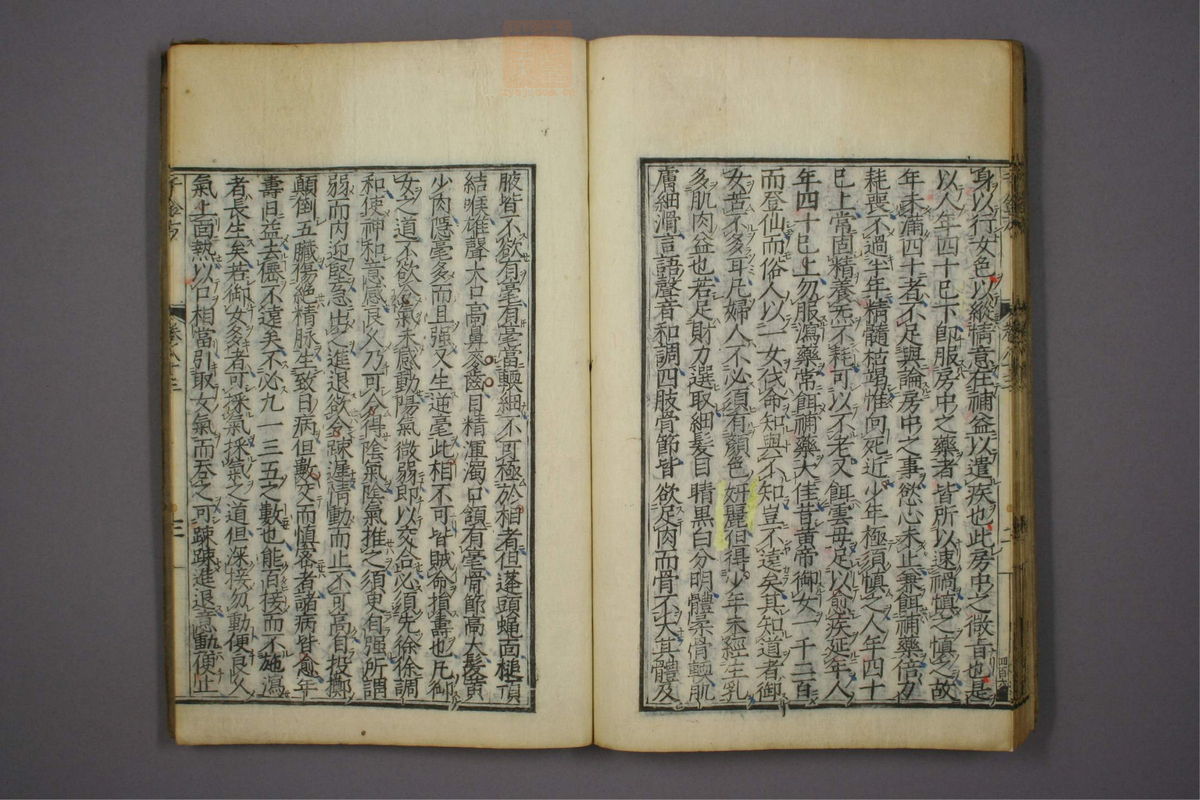 身以行女色以縱情意在補益以遣疾也此房中之微旨也是
以人年四十已下即服房中之藥者皆所以速禍慎之慎之故
年未滿四十者不足與論房中之事慾心未止兼餌補藥倍力
耗喪不過半年精髓枯竭惟向死近少年極須慎之人年四十
已上常固精養炁不耗可以不老又餌雲母足以愈疾延年人
年四十已上勿服瀉藥常餌補藥大佳昔黃帝御女一千二百
而登仙而俗人以一女伐命知與不知豈不遠矣其知道者御
女苦不多耳凡婦人不必須有顏色妍麗但得少年未經生乳
多肌肉益也若足財力選取細髮目睛黑白分明體柔骨軟肌
膚細滑言語聲音和調四肢骨節皆欲足肉而骨不大其體及
腋皆不欲有毫有毫當軟細不可極於相者但蓬頭蠅面槌項
結喉雄聲大口高鼻麥齒目精渾濁口頷有毫骨節高大髮黃
少肉隱毫多而且强又生逆毫此相不可皆賊命損壽也凡御
女之道不欲令氣未感動陽氣微弱即以交合必須先徐徐調
和使神和意感良久乃可令得陰氣陰氣推之須臾自强所謂
弱而內迎堅急出之進退欲令疎遲情動而止不可高自投擲
顛倒五臟傷絶精脉生致百病但數交而慎密者諸病皆愈年
壽日益去僊不遠矣不必九一三五之數也能百接而不施瀉
者長生矣若御女多者可採氣採氣之道但深接勿動便良久
氣上面熱以口相當引取女氣而吞之可疎疎進退意動便止
千金方
卷八十三
三